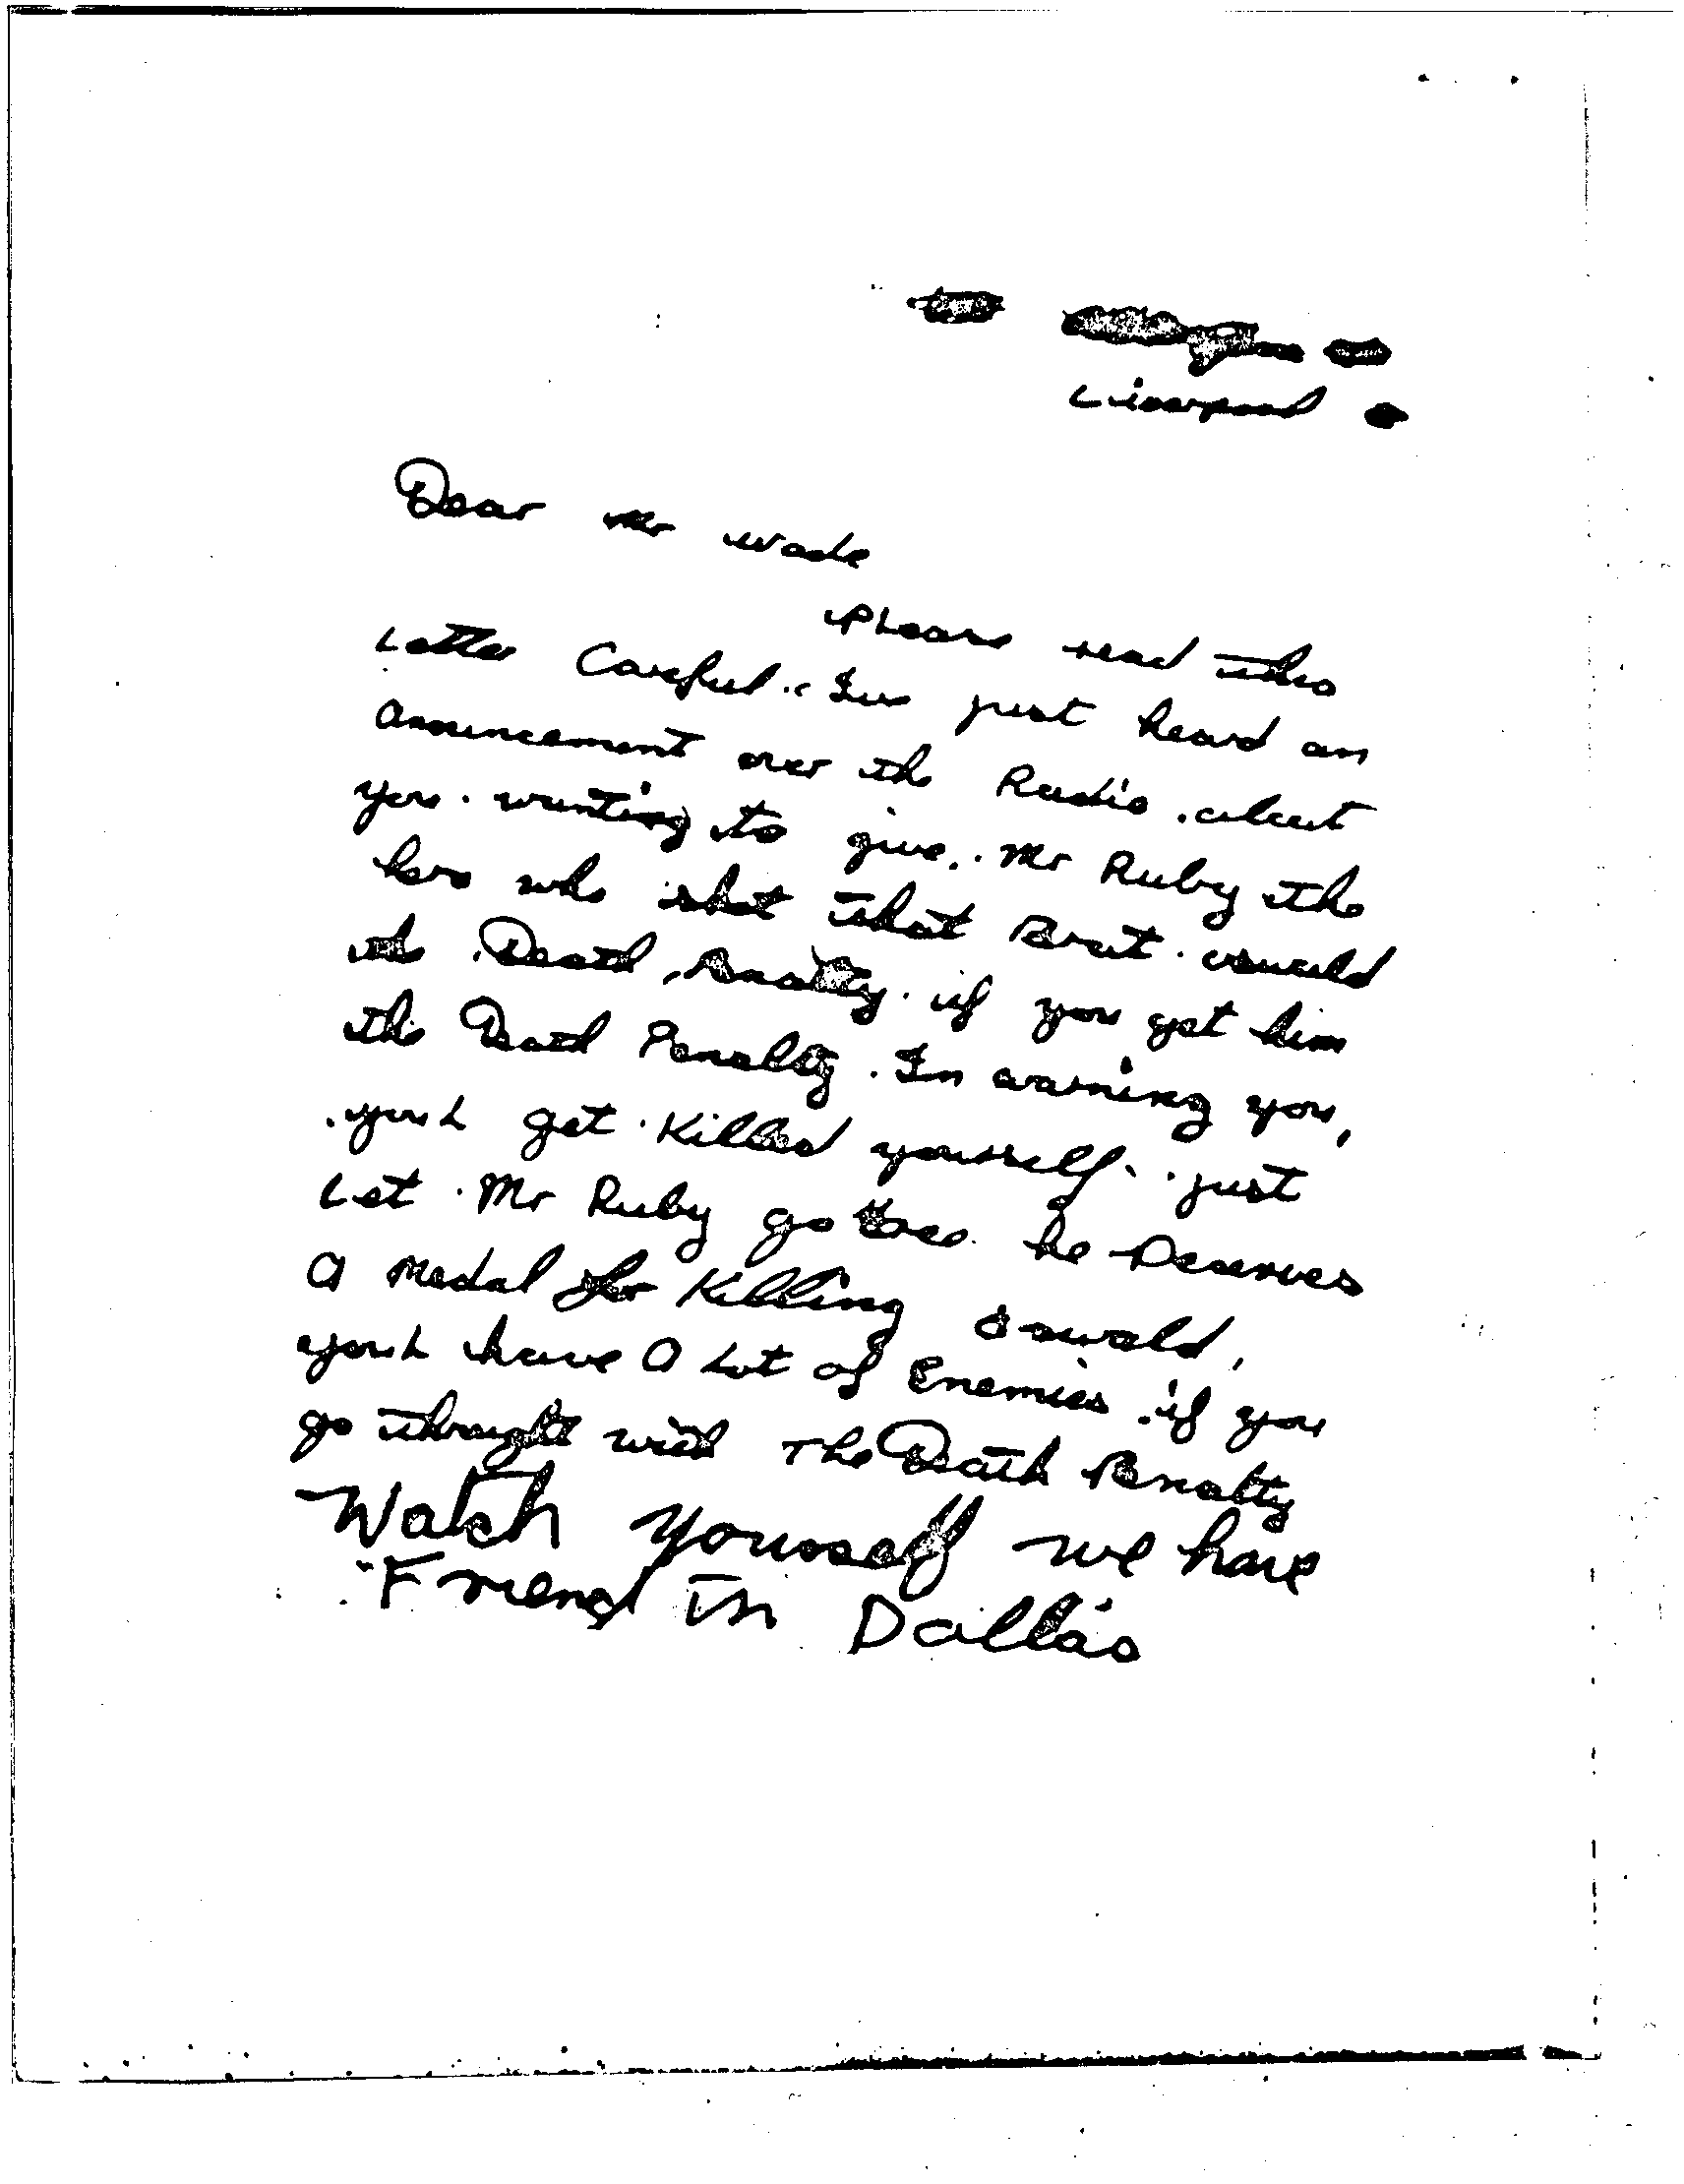 Liverpool
Dear Mr Wade
Please read this
Letter Careful. Ive just heard an
anouncement over the Radio. about
you. wanting to give. Mr Ruby the
hero who shot that Brat. oswald
the Death Penalty. if you get him
the Death Penalty. Im warning you,
youL get Killed yourself. just
Let Mr Ruby go free. he Deserves
A Medal for Killing oswald,
youL have A Lot of Enemies. if you
go throught with The Death Penalty
Watch yourself we have
Friend in Dallas